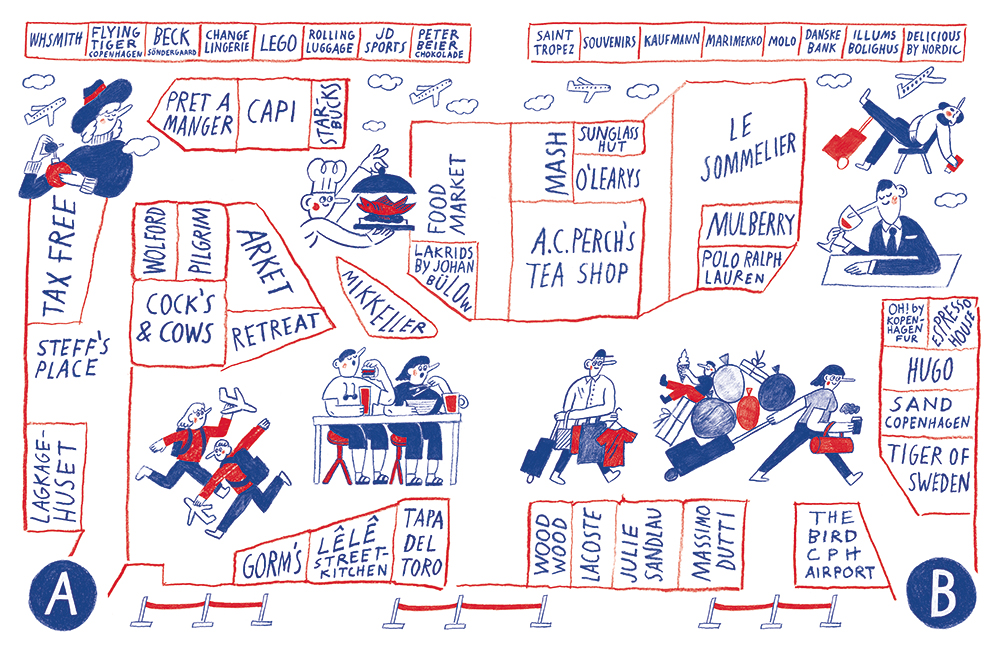 WHSMITH
FLYING
TIGER
COPENHAGEN
BECK
SÖNDERGAARD
CHANGE
LINGERIE
LEGO
ROLLING
LUGGAGE
JD
SPORTS
PETER
BEIER
CHOKOLADE
SAINT
TROPEZ
SOUVENIRS
KAUFMANN
MARIMEKKO
MOLO
DANSKE
BANK
ILLUMS
BOLIGHUS
DELICIOUS
BY NORDIC
PRET A
MANGER
CAPI
STAR-
BUCKS
FOOD
MARKET
MASH
SUNGLASS
HUT
O'LEARYS
LE
SOMMELIER
TAX FREE
WOLFORD
PILGRIM
ARKET
LAKRIDS
BY JOHAN
BÜLOW
A.C. PERCH'S
TEA SHOP
MULBERRY
POLO RALPH
LAUREN
STEFF'S
PLACE
COCK'S
& COWS
RETREAT
MIKKELLER
OH! by
KOPEN-
HAGEN
FUR
ESPRESSO
HOUSE
HUGO
SAND
COPENHAGEN
TIGER OF
SWEDEN
LAGKAGE-
HUSET
GORM'S
LÊLÊ
STREET-
KITCHEN
TAPA
DEL
TORO
WOOD
WOOD
LACOSTE
JULIE
SANDLAU
MASSIMO
DUTTI
THE
BIRD
CPH
AIRPORT
A
B